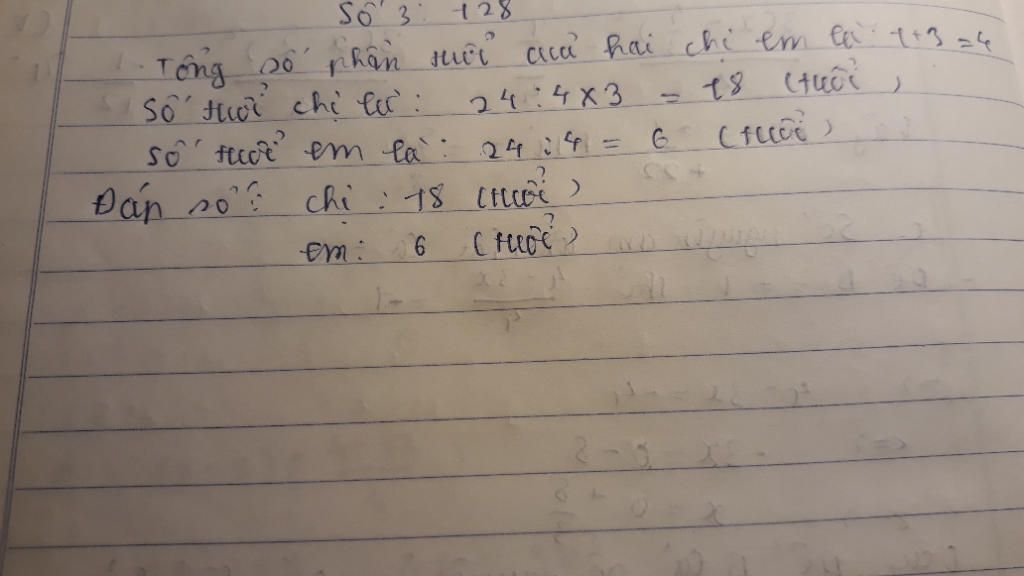 Số 3: 128
Tổng số phần tuổi của hai chị em là: 1+3=4
Số tuổi chị là: 24:4×3 = 18 (tuổi)
Số tuổi em là: 24:4 = 6 (tuổi)
Đáp số: chị: 18 (tuổi)
em: 6 (tuổi)